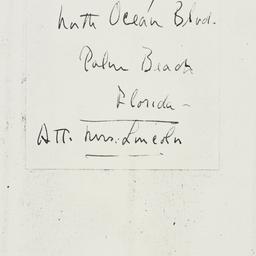 North Ocean Blvd.
Palm Beach
Florida -
Att. Mrs. Lincoln